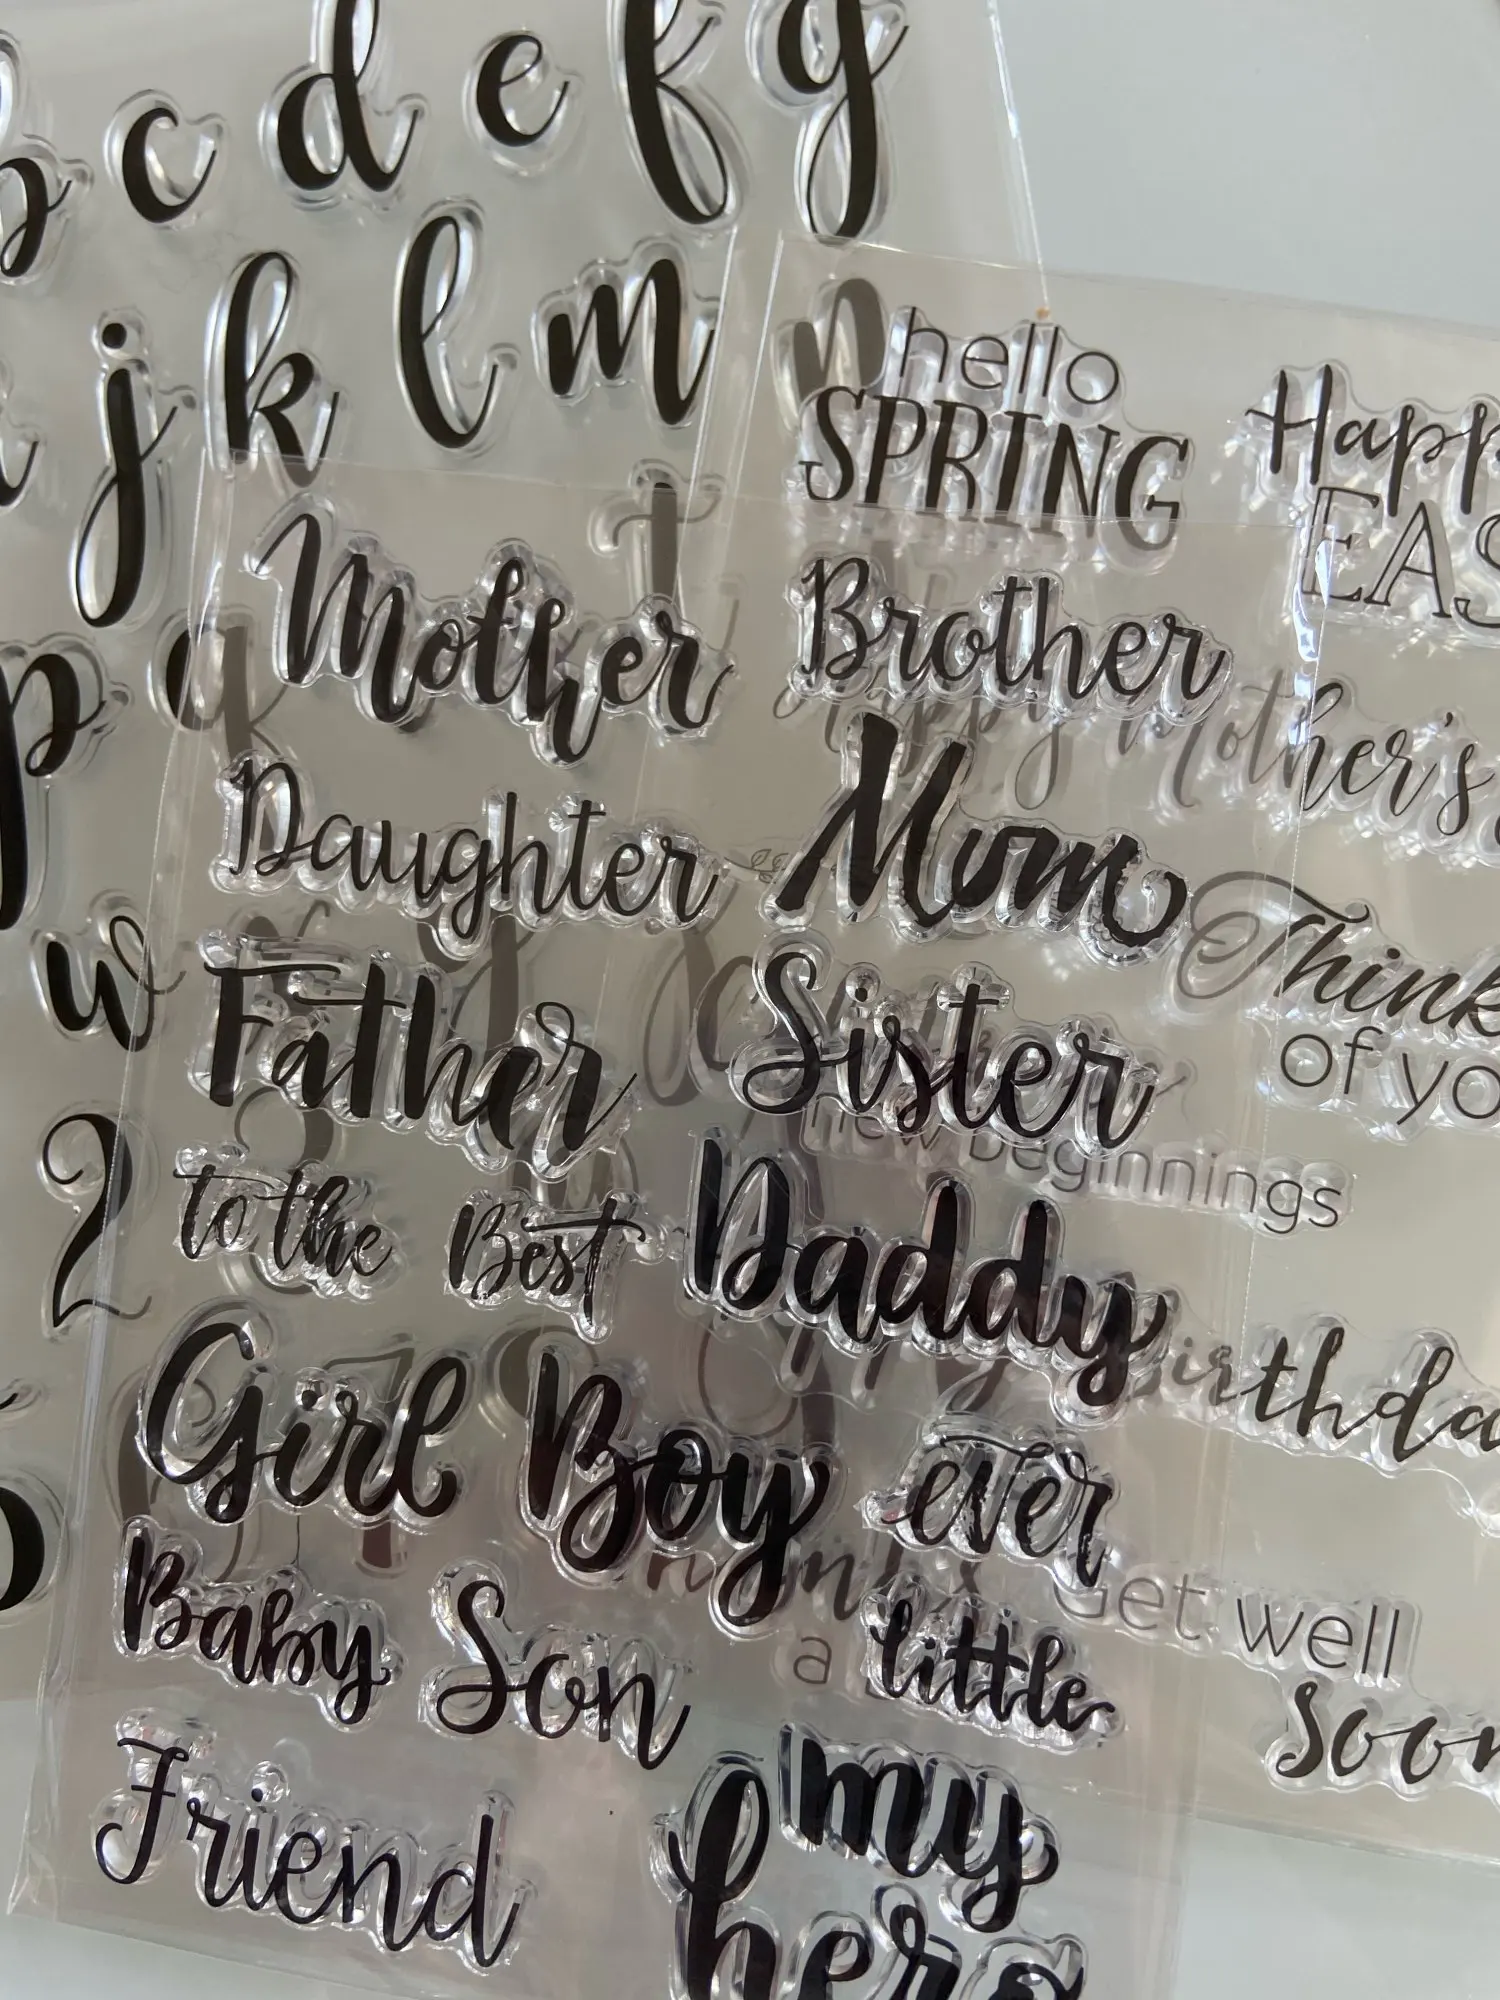 b c d e f g
j k l m n
p q t
w y
2 3
hello
SPRING
Mother
Brother
Happy Mother's
Daughter
Mum
Father
Sister
of
new beginnings
to the Best
Daddy
Girl Boy ever
Baby Son little
a
Get well
soon
Friend
my
hero